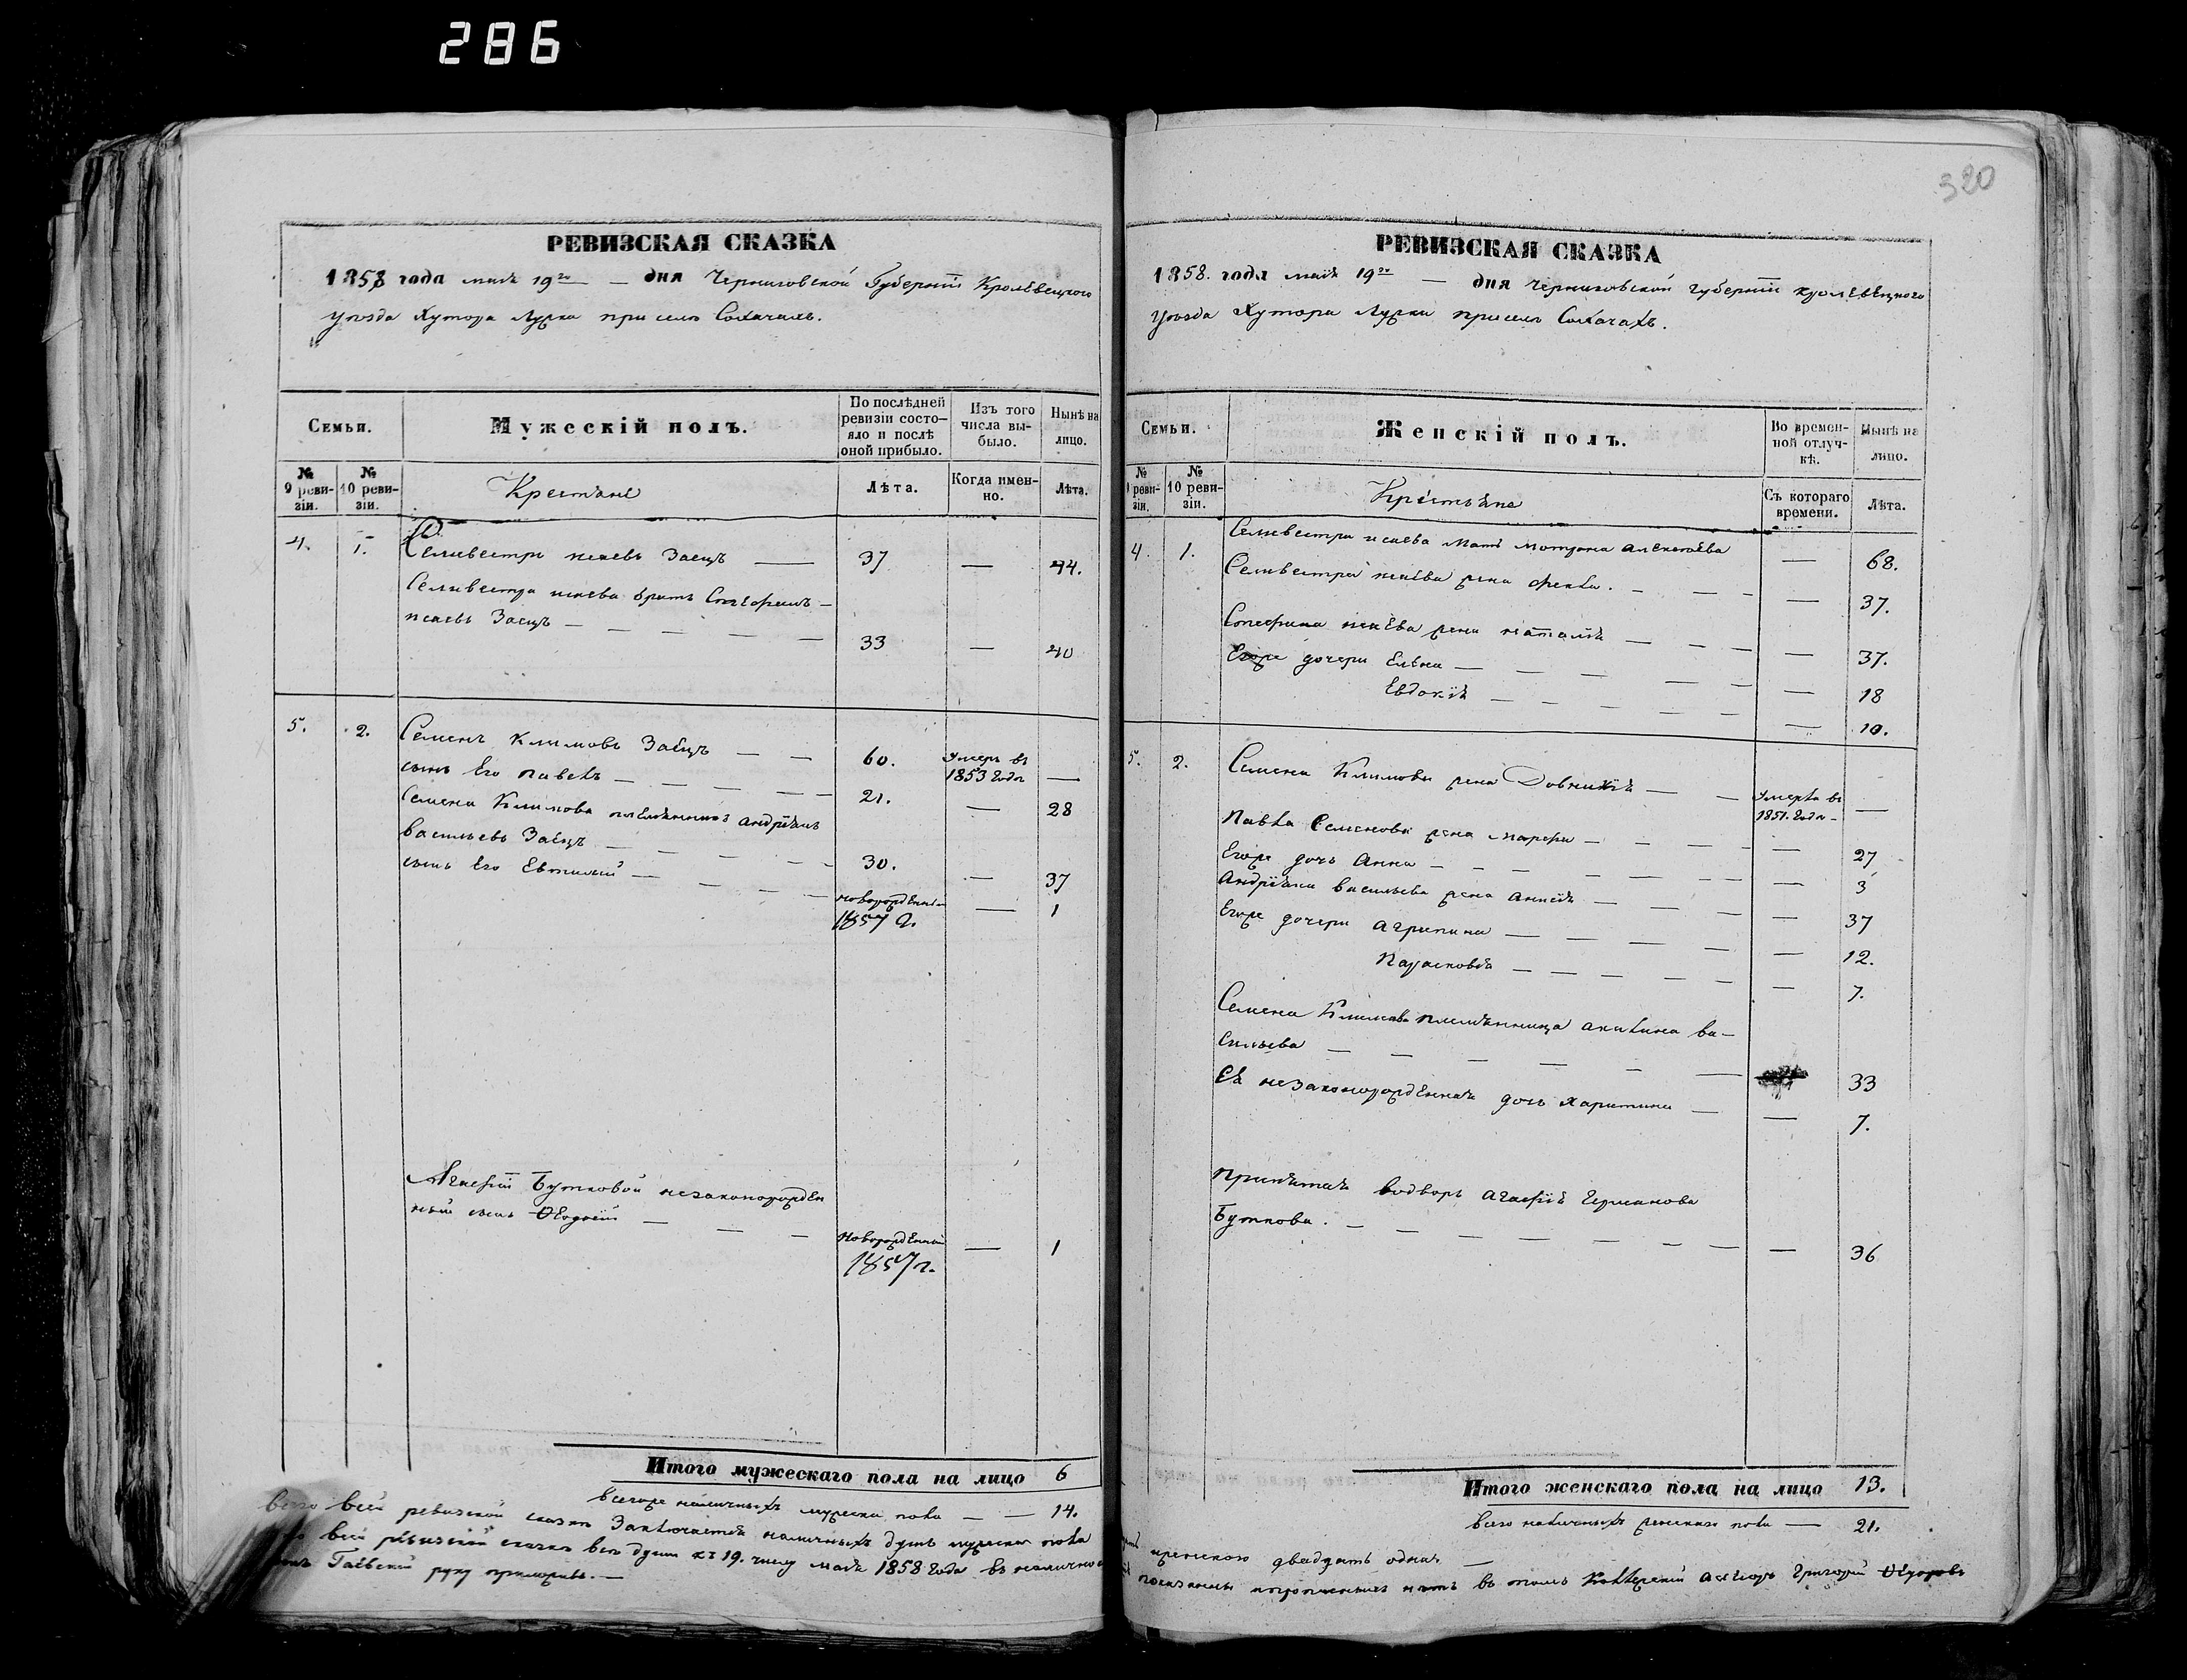 286
РЕВИЗСКАЯ СКАЗКА
1858 года мая 19го — дня Черниговской Губерніи Кролевецкого
уѣзда Хутора Лузка при селѣ Сохачахъ.
Семьи.
Мужескій полъ.
По послѣдней ревизіи состо-
яло и послѣ
оной прибыло.
Изъ того
числа вы-
было.
Нынѣ на
лицо.
№
9 реви-
зіи.
№
10 реви-
зіи.
Крестьяне
Лѣта.
Когда имен-
но.
Лѣта.
4. 1. Селивестръ исаевъ Заецъ — 37 — 44.
Селивестра исаева братъ Стефанъ —
исаевъ Заецъ — 33 — 40
5. 2. Семенъ Климовъ Заецъ — 60. Умеръ въ
1853 года —
сынъ Его павелъ — 21. — 28
Семена Климова племянникъ андріянъ
васильевъ Заецъ — 30. — 37
сынъ Его Евтихій — новорожденный
1857 г. — 1
Агафіи Бутковой незаконорожден
ный сынъ Ѳеодосій — новорожденный
1857 г. — 1
Итого мужескаго пола на лицо 6
Всегоже наличныхъ мужеска пола — 14.
всего всей ревизской сказкѣ Заключается наличныхъ душъ мужеска пола
всей ревизской сказкѣ всѣ души къ 19. числу мая 1858 года въ наличнос
Гаевскій руку приложилъ. —
320
РЕВИЗСКАЯ СКАЗКА
1858. года мая 19го — дня Черниговской губерніи кролевецкого
уѣзда Хутора Лузка при селѣ Сохачахъ.
Семьи.
Женскій полъ.
Во времен-
ной отлуч-
кѣ.
Нынѣ на
лицо.
№
9 реви-
зіи.
№
10 реви-
зіи.
Крестьяне
Съ котораго
времени.
Лѣта.
4. 1. Селивестра исаева мать мотрона алексеева — 68.
Селивестра исаева жена фекла. — 37.
Стефана исаева жена наталія — 37.
Егоже дочери Елена — 18
Евдокія — 10.
5. 2. Семена Климова жена Довникія — Умерла въ
1851. года —
Павла Семенова жена марфа — 27
Егоже дочь анна — 3
Андріяна васильева жена аннея — 37
Егоже дочери агрипина — 12.
Парасковія — 7.
Семена Климова племянница акилина ва-
сильева — 33
Ея незаконорожденная дочь харитина — 7.
принятая водворъ агафія германова
Буткова. — 36
Итого женскаго пола на лицо 13.
Всего наличныхъ женскаго пола — 21.
женскаго двадцать одна. —
показаны и пропущенныхъ нѣтъ въ томъ Григорій Ѳедоровъ